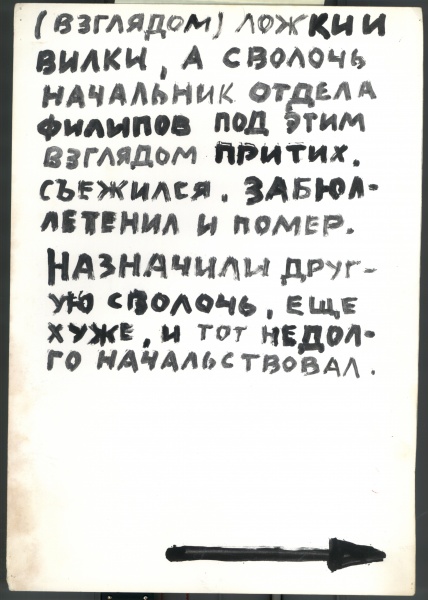 (ВЗГЛЯДОМ) ЛОЖКИ И
ВИЛКИ, А СВОЛОЧЬ
НАЧАЛЬНИК ОТДЕЛА
ФИЛИПОВ ПОД ЭТИМ
ВЗГЛЯДОМ ПРИТИХ.
СЪЕЖИЛСЯ. ЗАБЮЛ-
ЛЕТЕНИЛ И ПОМЕР.
НАЗНАЧИЛИ ДРУГ-
УЮ СВОЛОЧЬ, ЕЩЕ
ХУЖЕ, И ТОТ НЕДОЛ-
ГО НАЧАЛЬСТВОВАЛ.